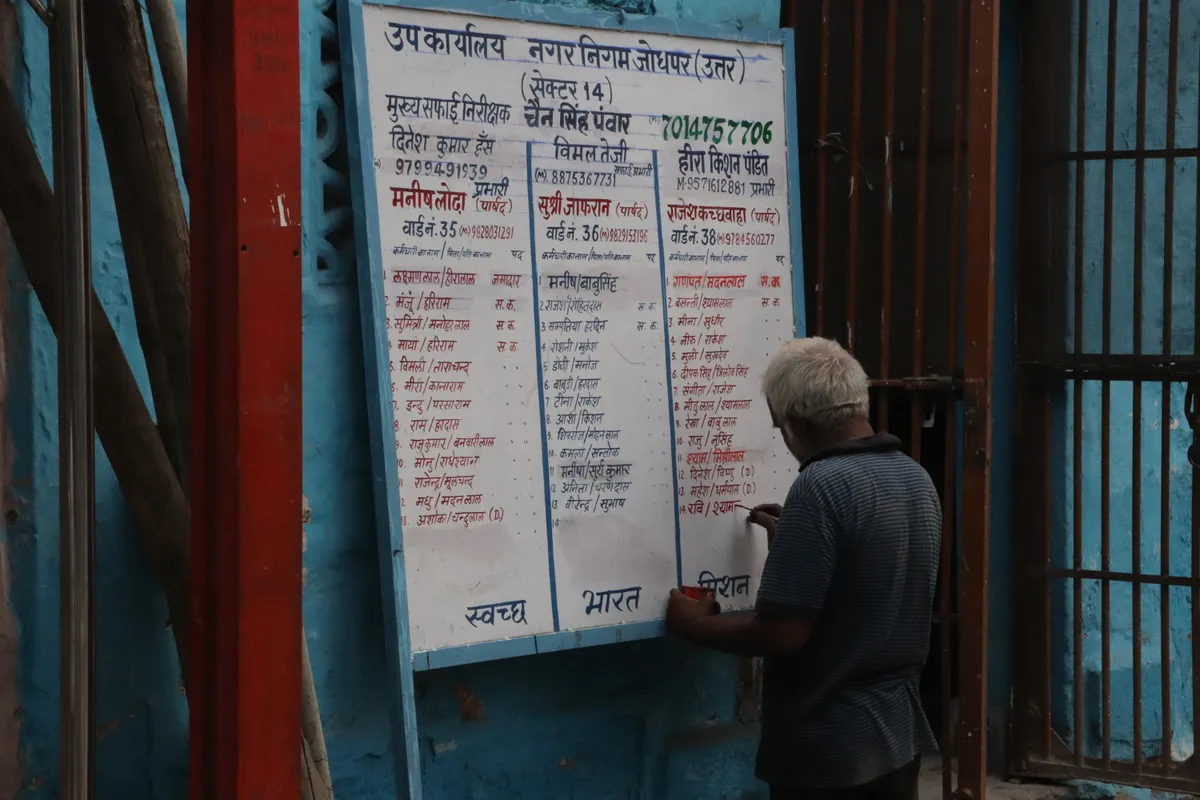 उप कार्यालय नगर निगम जोधपर (उत्तर)
(सेक्टर 14)
मुख्य सफाई निरीक्षक चैन सिंह पंवार (M) 7014757706
दिनेश कुमार हँस
9799491939
प्रभारी
मनीष लोढ़ा (पार्षद)
वार्ड नं. 35 (M) 9828031291
कर्मचारी का नाम / पिता/पति का नाम पद
1. लक्ष्मण लाल / हीरालाल जमादार
2. मंजूं / हरिराम स. क.
3. सुमित्रा / मनोहर लाल स. क.
4. माया / हरिराम स. क.
5. विमली / ताराचन्द
6. मीरा / कानाराम
7. इन्दु / परसाराम
8. राम / हरदास
9. राजकुमार / बनवारीलाल
10. मोनु / राधेश्याम
11. राजेन्द्र / मूलचन्द
12. मधु / मदनलाल
13. अशोक / चन्दुलाल (D.)
विमल तेजी
(M) 8875367731 सफाई प्रभारी
सुश्री जाफरान (पार्षद)
वार्ड नं. 36 (M) 9829153196
कर्मचारी का नाम / पिता/पति का नाम पद
1 मनीष / बाबुसिंह
2. राजेश / रोहितदास स. क.
3. सम्पतिया हरदिन स. क.
4. रोशनी / मुकेश
5. डोली / मनोज
6. बाबुड़ी / हरदास
7. टीना / राकेश
8. आशा / किशन
9. शिवराज / मोहनलाल
10. कमला / सन्तोक
11 मनीषा / सुर्य कुमार
12 अनिता / चरणदास
13 वीरेन्द्र / सुभाष
14
हीरा किशन पंडित
M-9571612881 प्रभारी
राजेश कच्छवाहा (पार्षद)
वार्ड नं. 38 (M) 9784560277
कर्मचारी का नाम / पिता/पति का नाम पद
1. गणपत / मदनलाल स. क.
2. बसन्ती / श्यामलाल स. क.
3. मीना / सुधीर
4. नीरु / राकेश
5. मुली / सुखदेव
6. दीपक सिंह / त्रिलोक सिंह
7. संगीता / राजेश
8 मीठु लाल / श्यामलाल
9. रेखा / बाबु लाल
10. राजु / नृसिंह
11 श्याम / मिश्रीलाल
12 दिनेश / विष्णु (D.)
13 महेश / धर्मपाल (D.)
14. रवि / श्याम
स्वच्छ भारत मिशन